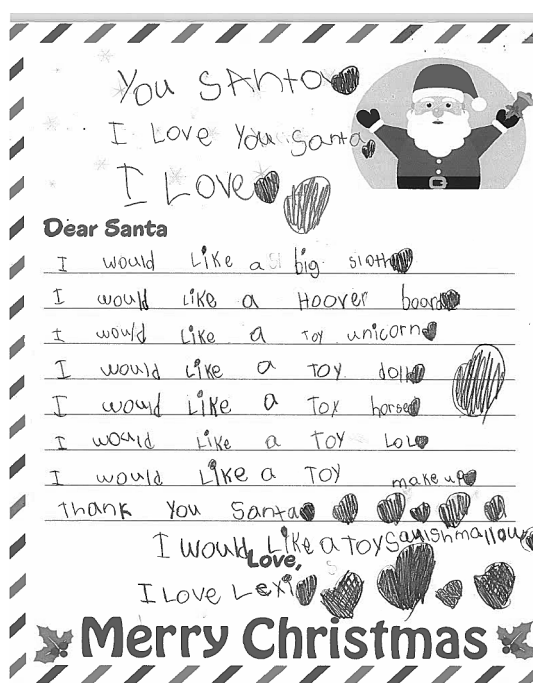 You SAnta
I Love You Santa
I Love
Dear Santa
I would Like a big sloth
I would like a Hoover board
I would like a Toy unicorn
I would like a Toy doll
I would Like a Toy horse
I would Like a Toy LOL
I would Like a Toy make up
thank You Santa
I would Like a Toy Squishmallow
Love,
I Love Lexi
Merry Christmas